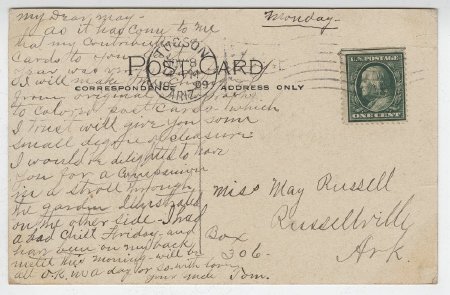 Monday-
My Dear May-
As it has come to me
that my Contribution
Cards to your
I will make
from original
to colored post cards which
I trust will give you some
small degree of pleasure
I would be delighted to have
you for a companion
in a stroll through
the garden illustrated
on the other side- I had
a bad Chill Friday- and
have been on my back
until this morning- will be
all O.K. in a day or so with love
your Uncle Tom.
TUCSON
8
09
ARIZ.
POST CARD
CORRESPONDENCE
ADDRESS ONLY
U.S. POSTAGE
ONE CENT
Miss May Russell
Russellville
Box
306-
Ark.